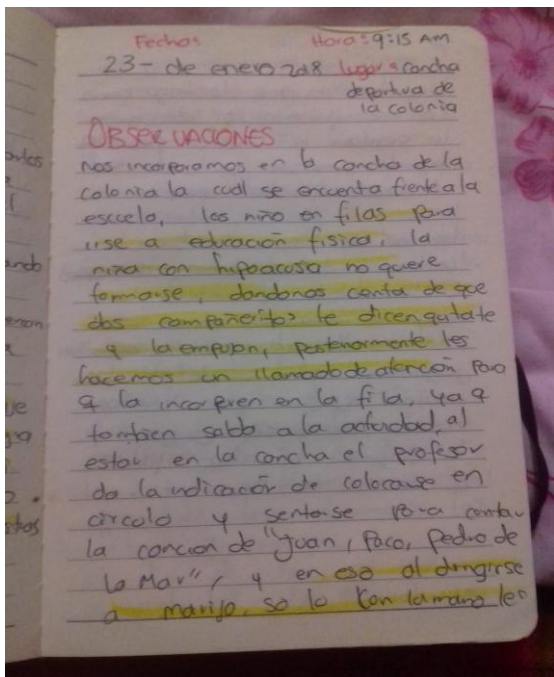 Fecha: Hora: 9:15 AM
23- de enero 2018 lugar: concha
deportiva de
la colonia
OBSERVACIONES
nos incorporamos en la concha de la
colonia la cual se encuenta frente a la
escuela, los niño en filas para
irse a educación fisica, la
niña con hipoacusia no quere
formarse, dandonos centa de que
dos compañeritos le dicen quitate
y la empujan, posteriormente les
hacemos un llamado de atención para
q la incorporen en la fila, ya q
tambien saldo a la actividad, al
estar en la concha el profesor
da la indicación de colocarse en
circulo y sentarse para cantar
la cancion de "Juan, Paco, Pedro de
la Mar", y en eso al dirigirse
a marijo, so lo con la mano les